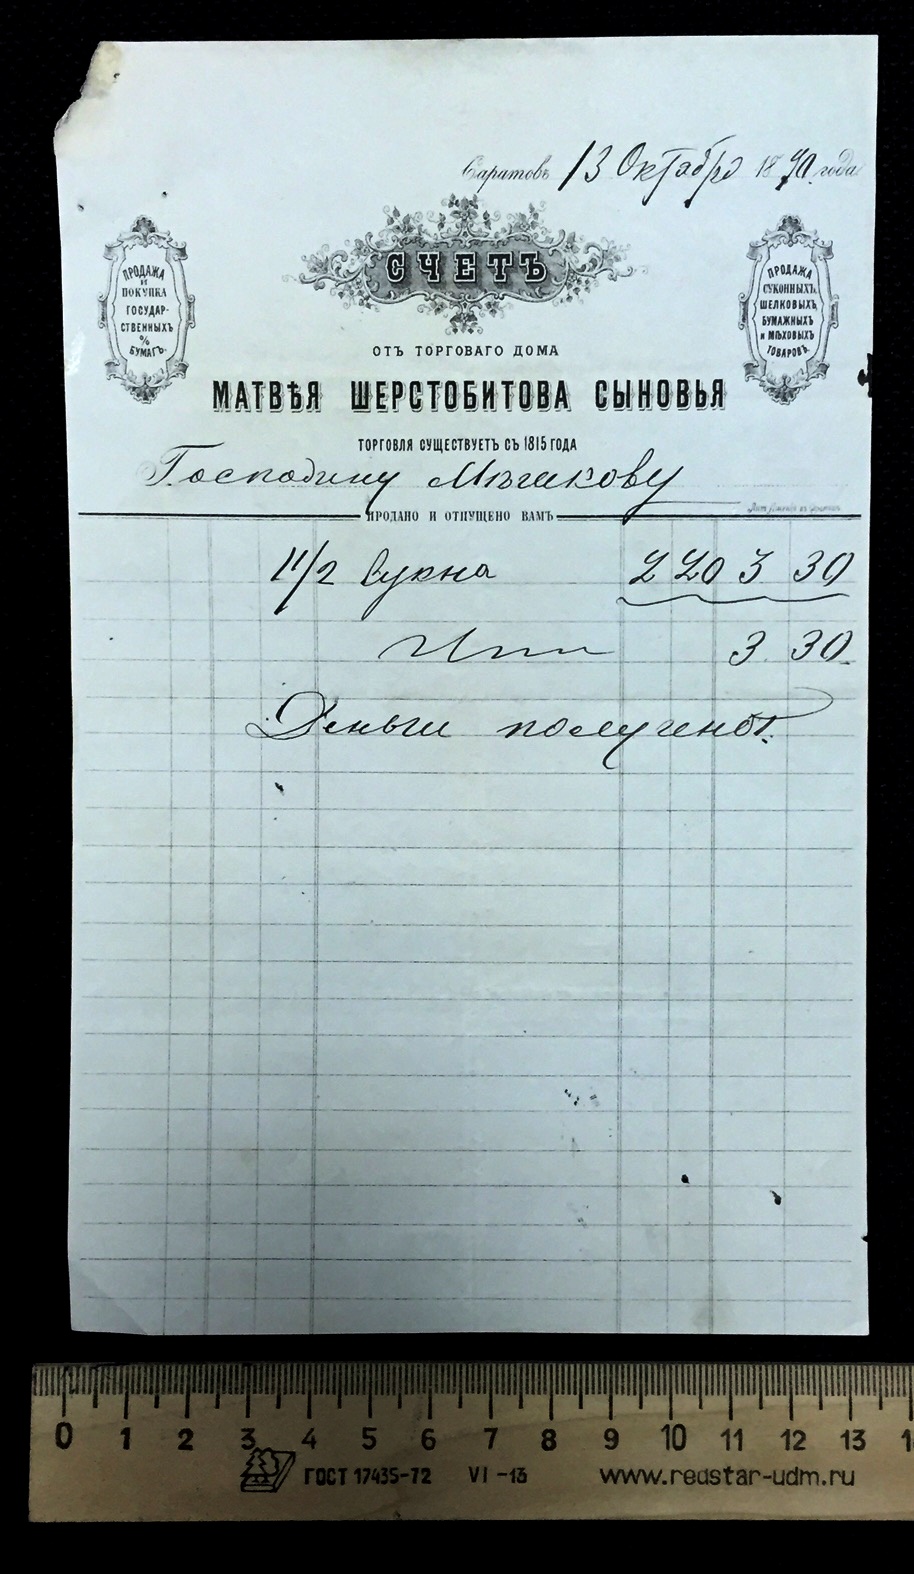 Саратовъ 13 Октября 1890 года
СЧЕТЪ
ПРОДАЖА
И
ПОКУПКА
ГОСУДАР-
СТВЕННЫХЪ
%
БУМАГЪ.
ПРОДАЖА
СУКОННЫХЪ,
ШЕЛКОВЫХЪ,
БУМАЖНЫХЪ
и МѢХОВЫХЪ
ТОВАРОВЪ.
ОТЪ ТОРГОВАГО ДОМА
МАТВѢЯ ШЕРСТОБИТОВА СЫНОВЬЯ
ТОРГОВЛЯ СУЩЕСТВУЕТЪ СЪ 1815 ГОДА
Господину
ПРОДАНО И ОТПУЩЕНО ВАМЪ
1 1/2 Сукна 2 20 3 30
3 30
Деньги получены
0 1 2 3 4 5 6 7 8 9 10 11 12 13
ГОСТ 17435-72 VI-13 www.redstar-udm.ru